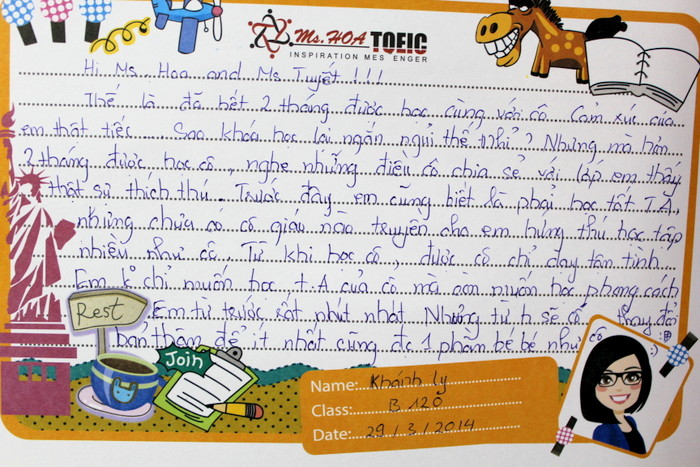 Ms. HOA TOEIC
INSPIRATION MESSENGER
Hi Ms. Hoa and Ms. Tuyết!!!
Thế là đã hết 2 tháng được học cùng với cô. Cảm xúc của
em thật tiếc .... Sao khóa học lại ngắn ngủi thế nhỉ? Nhưng mà hơn
2 tháng được học cô, nghe những điều cô chia sẻ với lớp em thấy
thật sự thích thú. Trước đây em cũng biết là phải học tốt T.A,
nhưng chưa có cô giáo nào truyền cho em hứng thú học tập
nhiều như cô. Từ khi học cô, được cô chỉ dạy tận tình.
Em k chỉ muốn học t.A của cô mà còn muốn học phong cách
Rest
Em từ trước rất nhút nhát. Nhưng từ h sẽ cố thay đổi
bản thân để ít nhất cũng đc 1 phần bé bé như cô :)
Join
Name: Khánh Ly
Class: B 120
Date: 29/3/2014